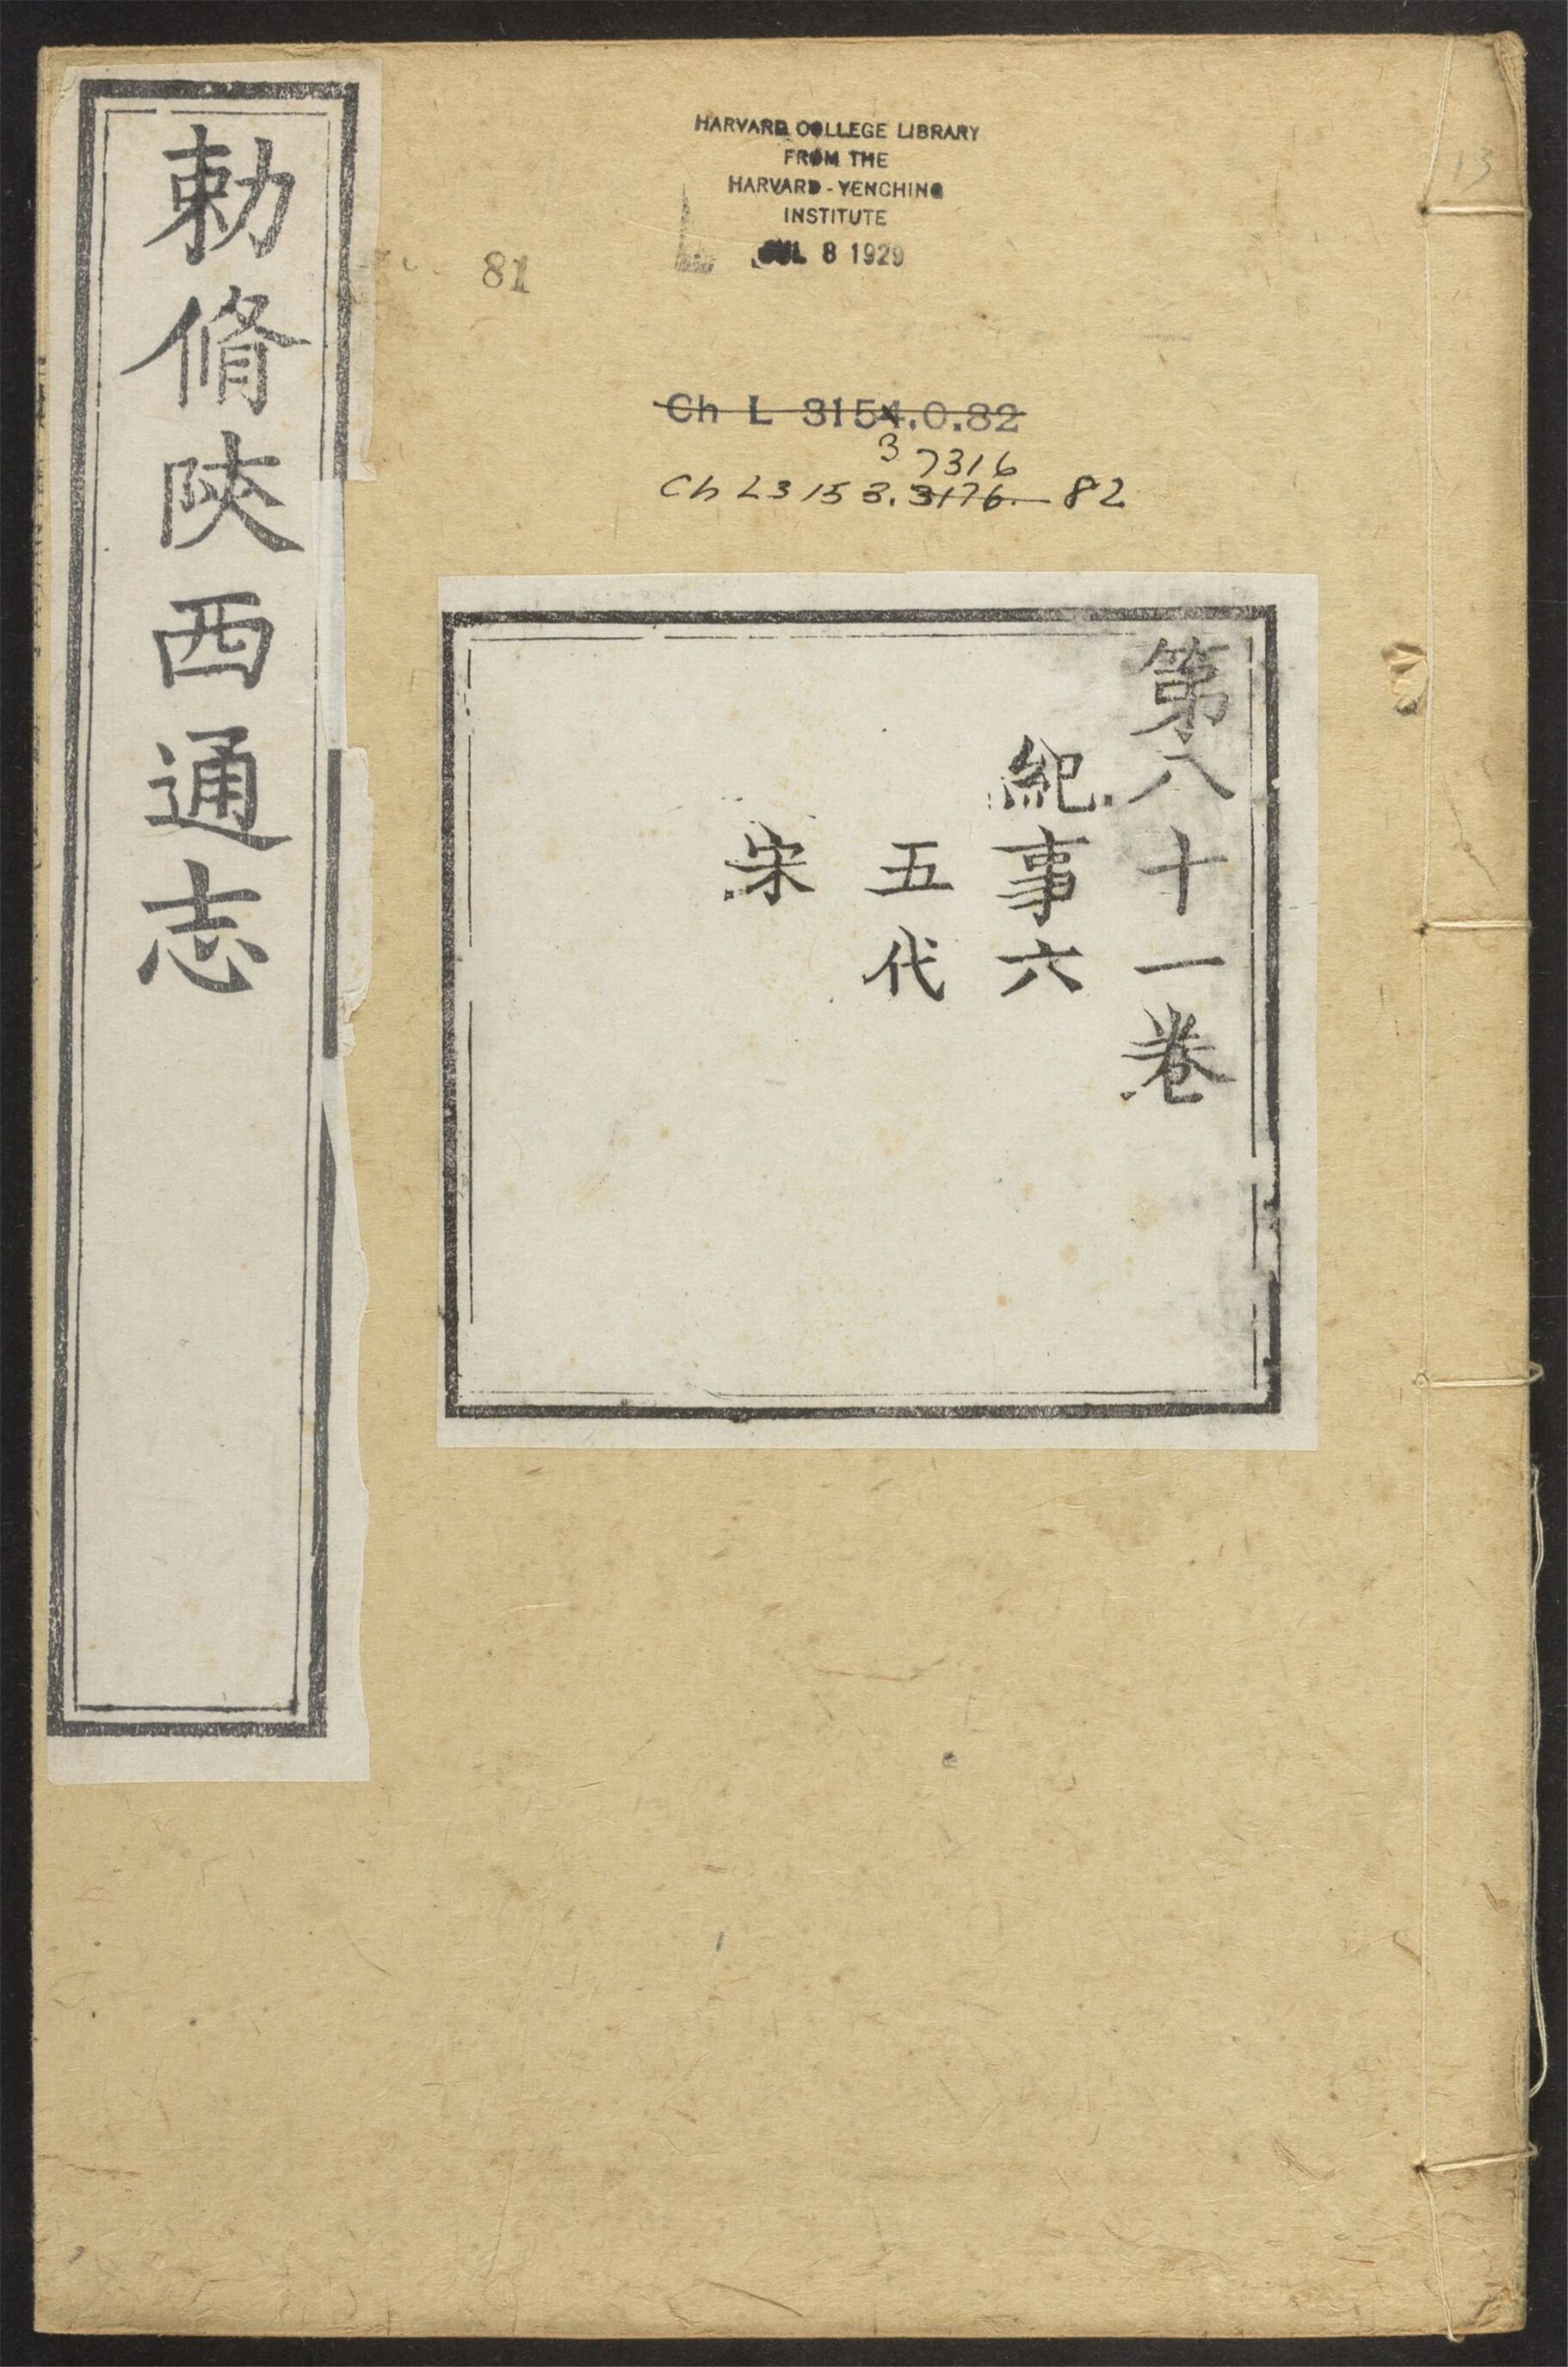 勅脩陝西通志
81
HARVARD COLLEGE LIBRARY
FROM THE
HARVARD-YENCHING
INSTITUTE
JUL 8 1929
13
Ch L 3154.0.82
3 7316
Ch L 3153.3176.82
第八十一卷
紀事六
五代
宋